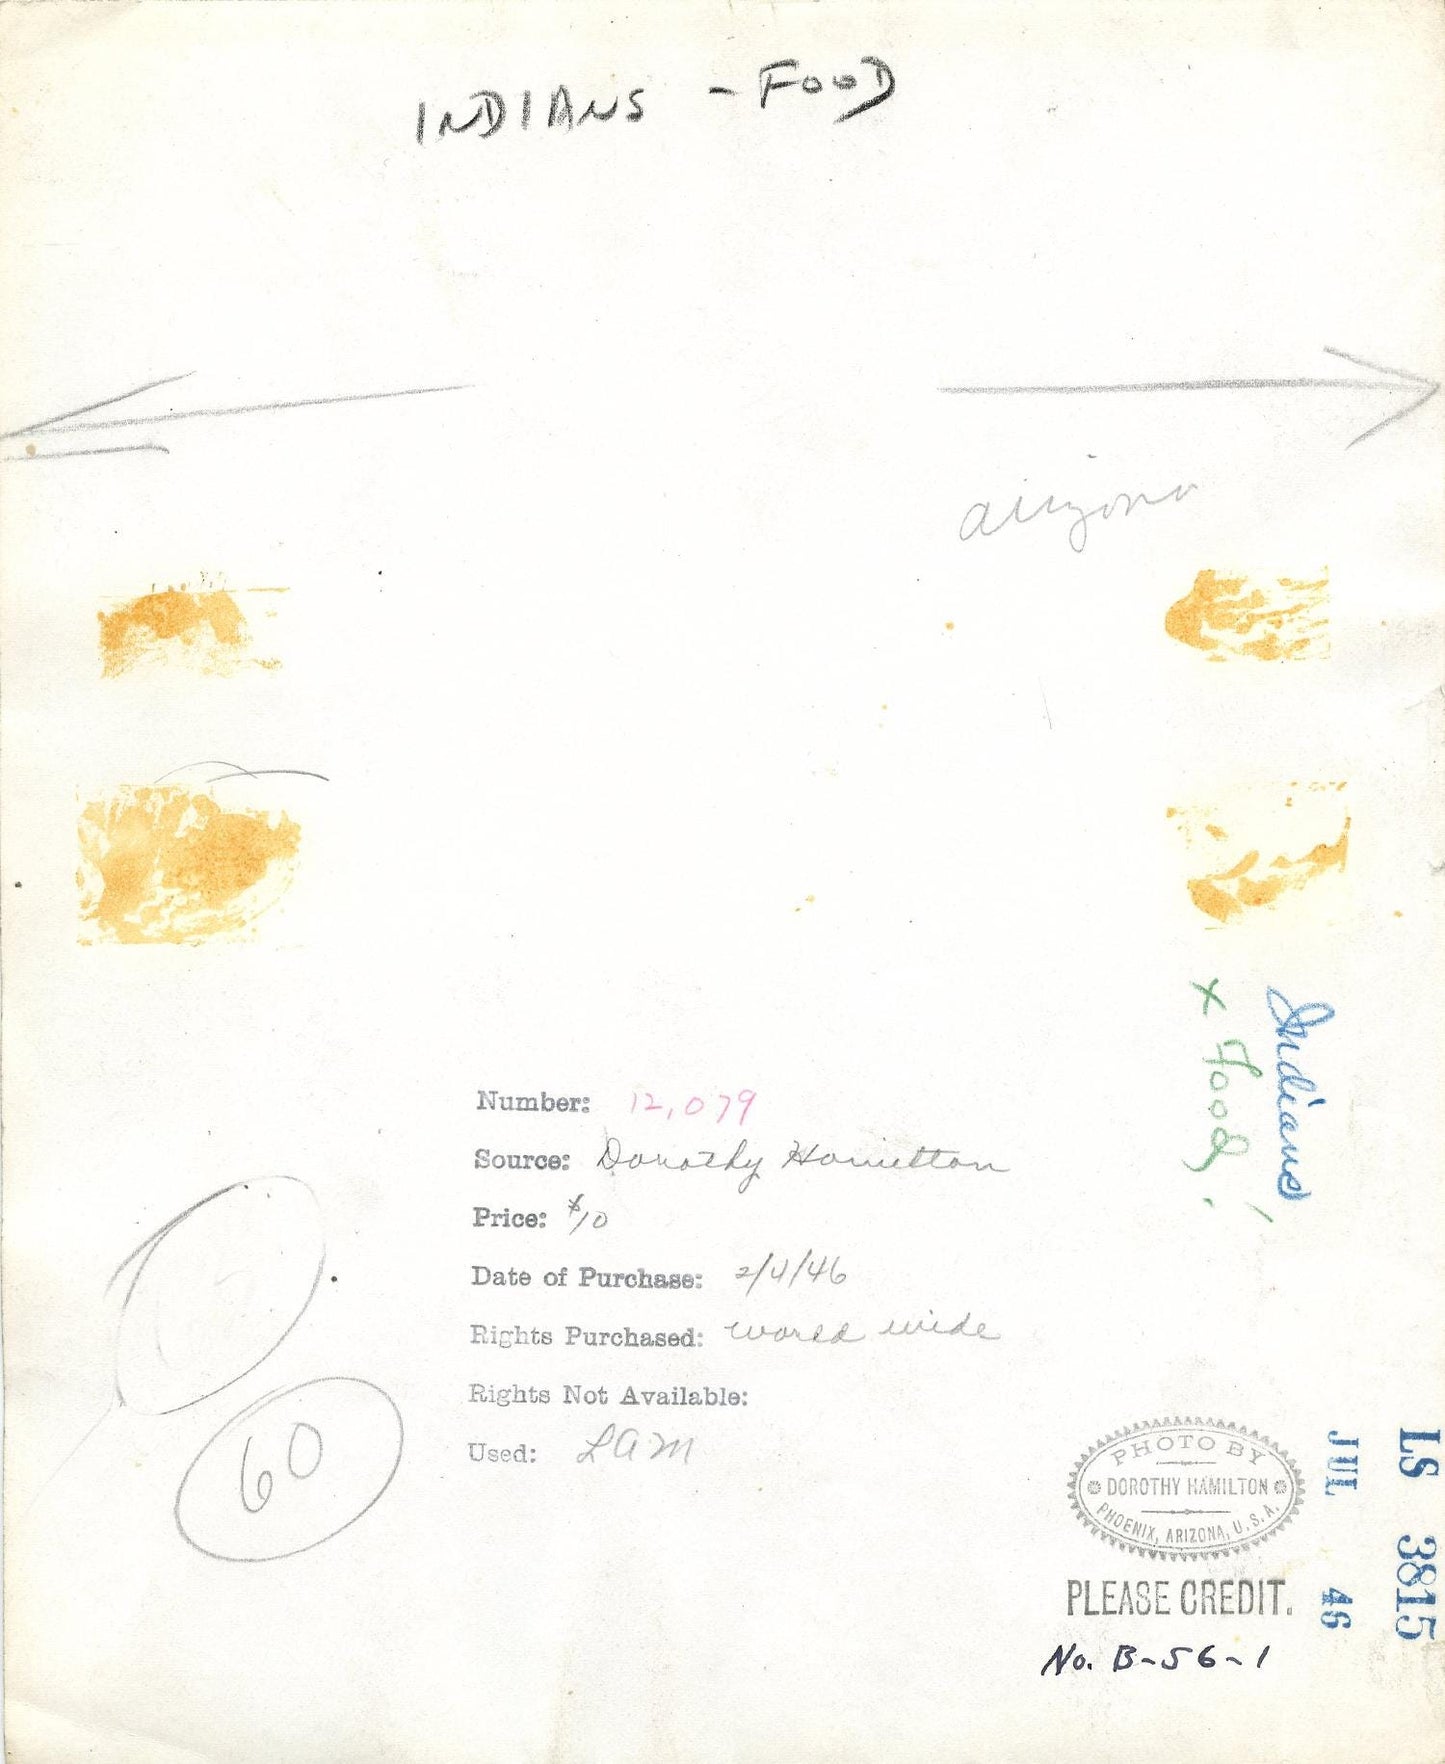 INDIANS - FOOD
arizona
Indians
x Food
Number: 12,079
Source: Dorothy Hamilton
Price: $10
Date of Purchase: 2/4/46
Rights Purchased: world wide
Rights Not Available:
Used: LAM
60
PHOTO BY
DOROTHY HAMILTON
PHOENIX, ARIZONA, U.S.A.
PLEASE CREDIT.
No. B-56-1
JUL 46
LS 3815